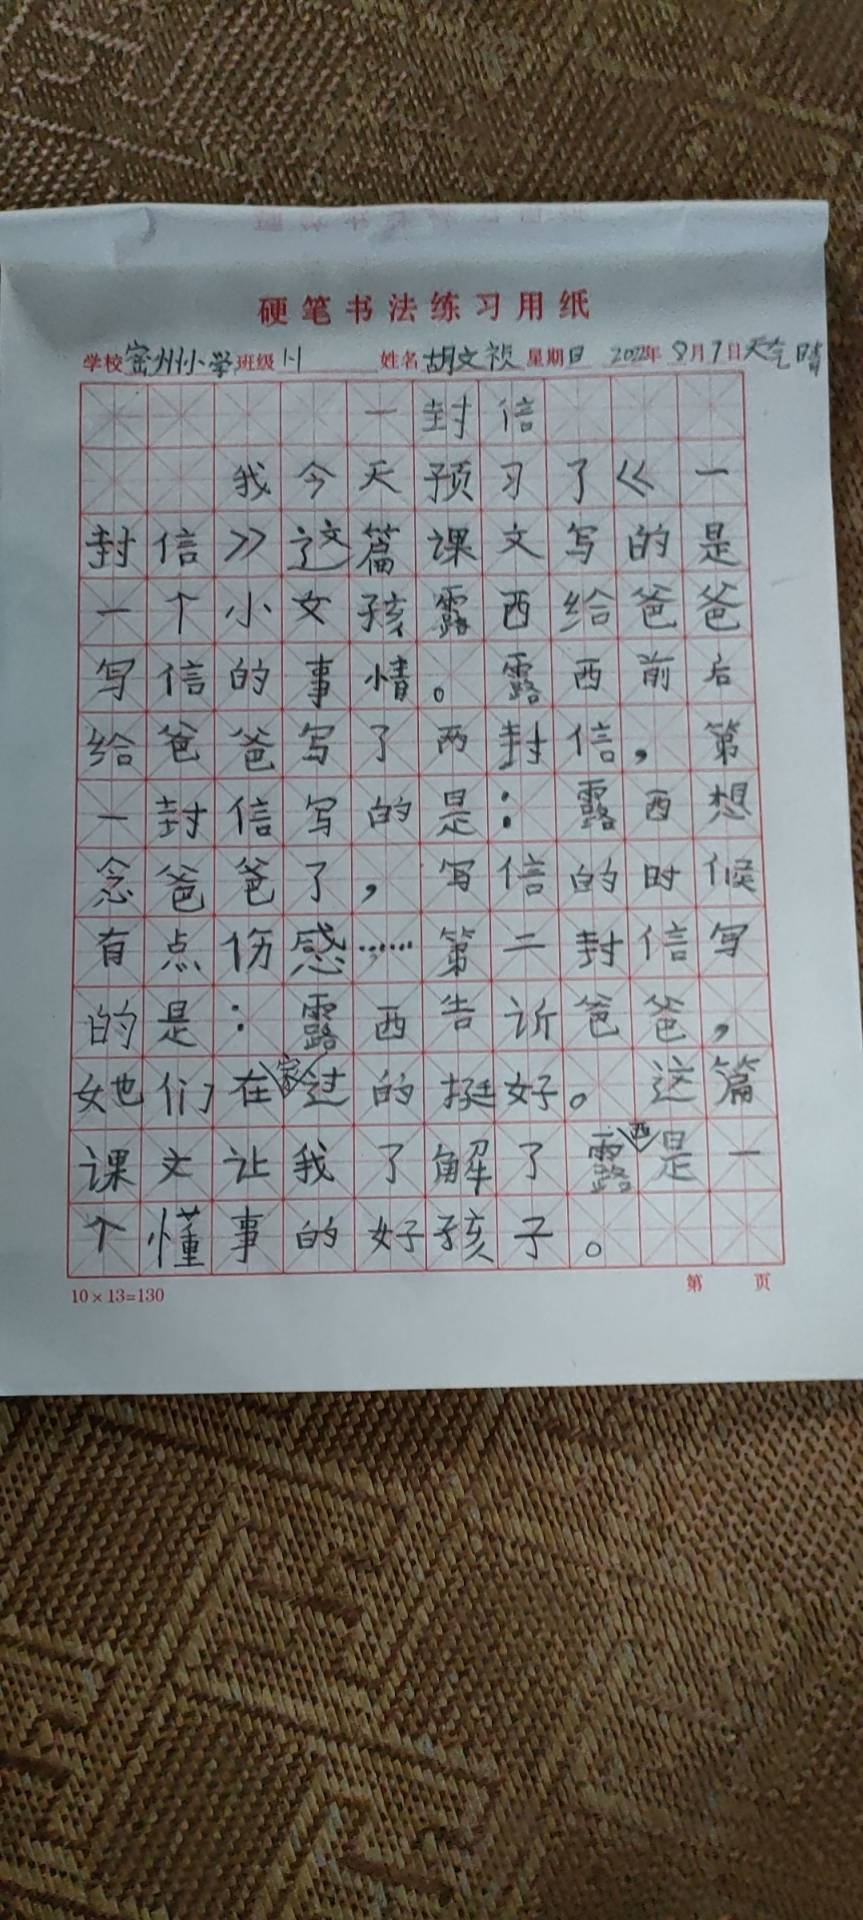 硬笔书法练习用纸
学校密州小学班级1·1 姓名胡文祯星期日 2022年8月7日天气晴
一封信
我今天预习了《一
封信》这篇课文写的是
一个小女孩露西给爸爸
写信的事情。露西前后
给爸爸写了两封信，第
一封信写的是：露西想
念爸爸了，写信的时候
有点伤感……第二封信写
的是：露西告诉爸爸，
她们在家过的挺好。这篇
课文让我了解了露西是一
个懂事的好孩子。
10×13=130 第 页